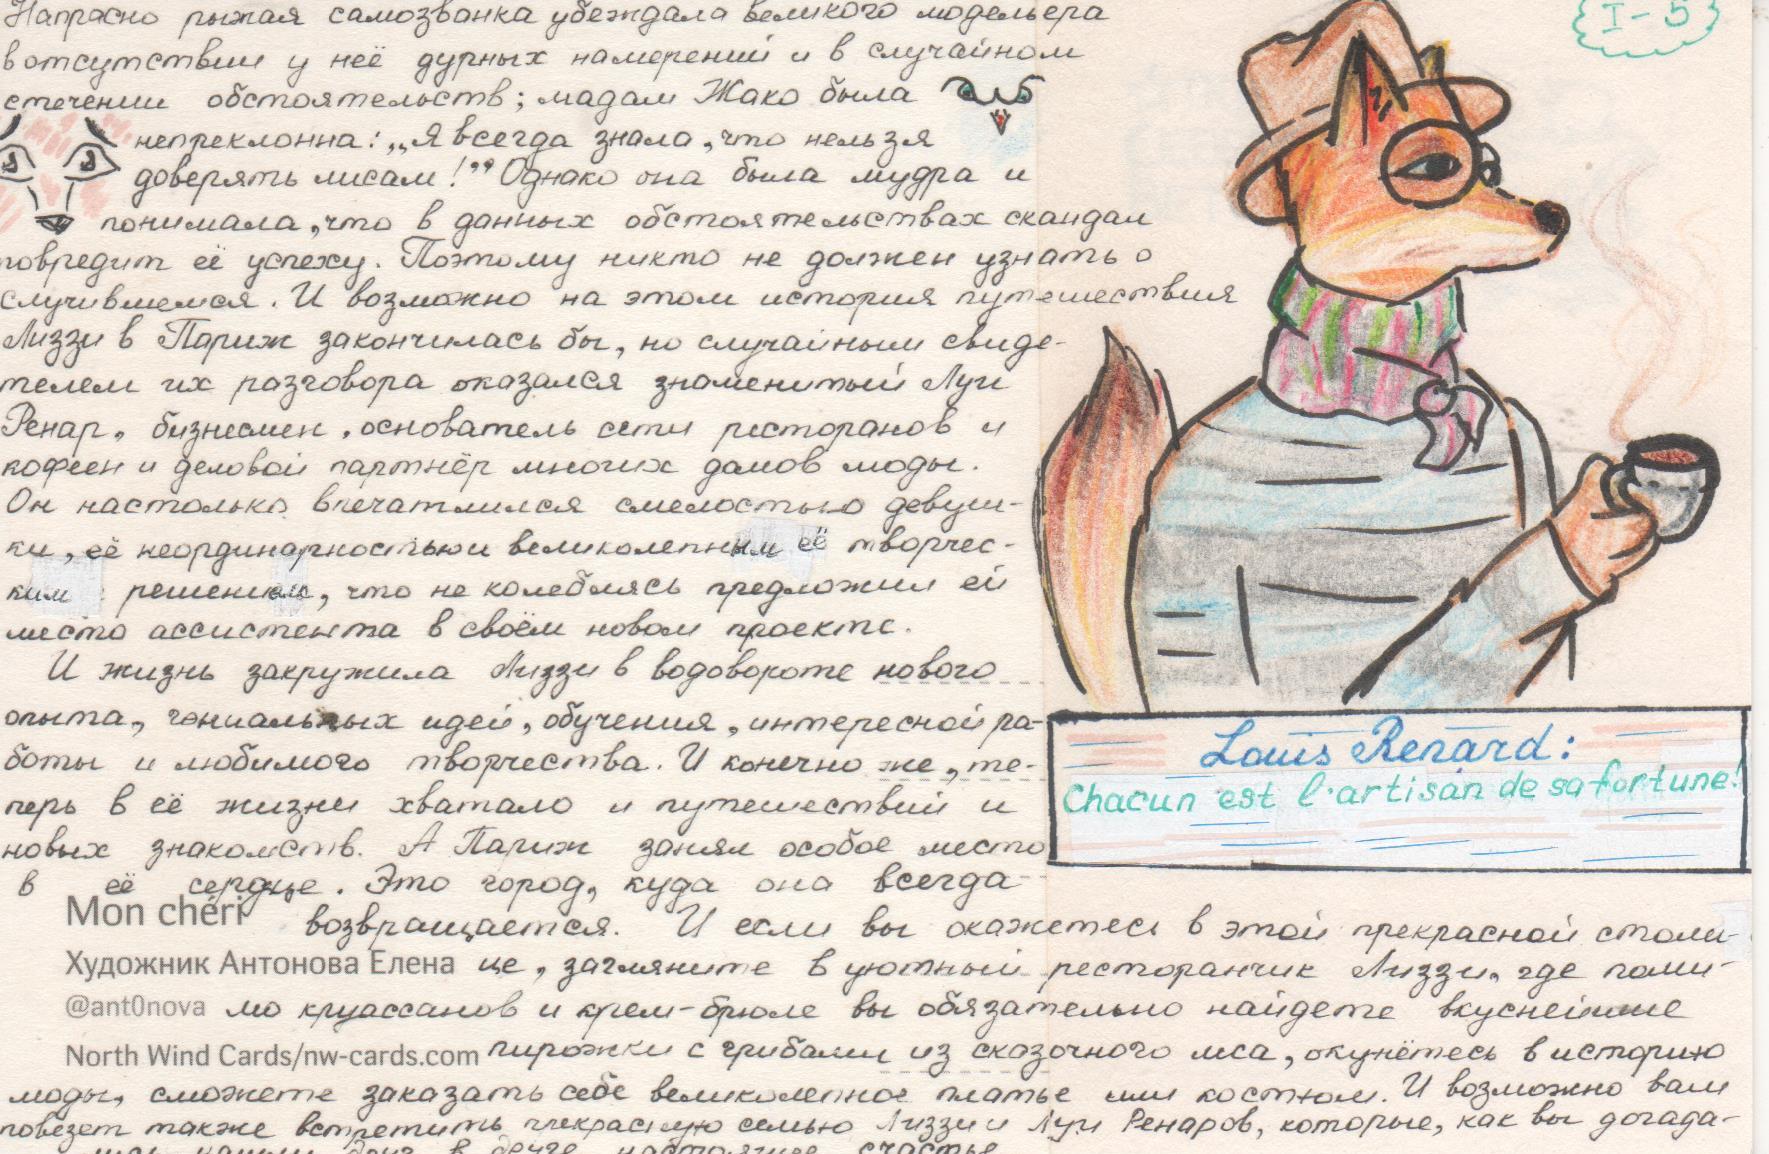 Напрасно рыжая самозванка убеждала великого модельера
I-5
в отсутствии у неё дурных намерений и в случайном
стечении обстоятельств; мадам Жако была
непреклонна: „Я всегда знала, что нельзя
доверять лисам!” Однако она была мудра и
понимала, что в данных обстоятельствах скандал
повредит её успеху. Поэтому никто не должен узнать о
случившемся. И возможно на этом история путешествия
Лиззи в Париж закончилась бы, но случайным свиде-
телем их разговора оказался знаменитый Луи
Ренар, бизнесмен, основатель сети ресторанов и
кофеен и деловой партнёр многих домов моды.
Он настолько впечатлился смелостью девуш-
ки, её неординарностью и великолепным её творчес-
ким решением, что не колеблясь предложил ей
место ассистента в своём новом проекте.
И жизнь закружила Лиззи в водовороте нового
опыта, гениальных идей, обучения, интересной ра-
боты и любимого творчества. И конечно же, те-
перь в её жизни хватало и путешествий и
новых знакомств. А Париж занял особое место
в её сердце. Это город, куда она всегда
Louis Renard:
Chacun est l'artisan de sa fortune!
возвращается. И если вы окажетесь в этой прекрасной столи-
це, загляните в уютный ресторанчик Лиззи, где поми-
мо круассанов и крем-брюле вы обязательно найдете вкуснейшие
пирожки с грибами из сказочного леса, окунётесь в историю
моды, сможете заказать себе великолепное платье или костюм. И возможно вам
повезет также встретить прекрасную семью Лиззи и Луи Ренаров, которые, как вы догада-
лись нашли друг в друге настоящее счастье
Mon chéri
Художник Антонова Елена
@ant0nova
North Wind Cards/nw-cards.com